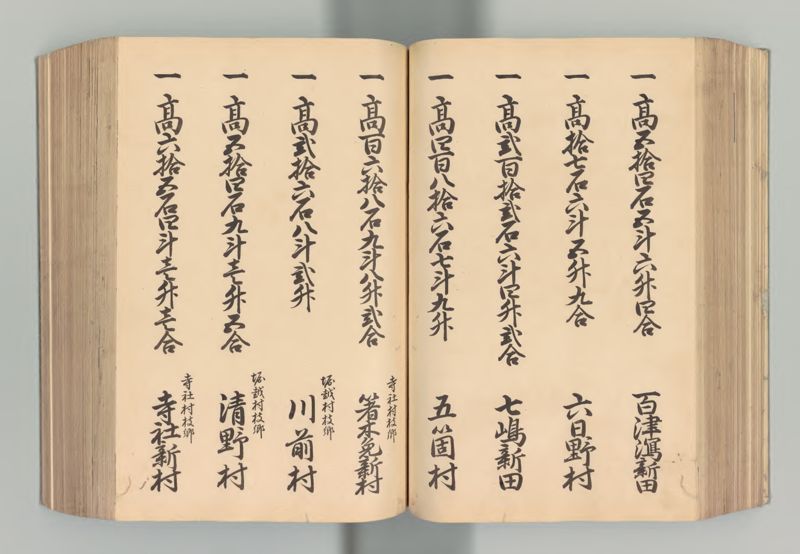 一 高五拾四石五斗六升四合 百津潟新田
一 高拾七石六斗五升九合 六日野村
一 高弐百拾弐石六斗四升弐合 七嶋新田
一 高四百八拾六石七斗九升 五箇村
一 高百六拾八石九斗八升弐合 寺社村枝郷 箸木免新村
一 高弐拾六石八斗弐升 堀越村枝郷 川前村
一 高五拾四石九斗壱升五合 堀越村枝郷 清野村
一 高六拾五石四斗壱升壱合 寺社村枝郷 寺社新村